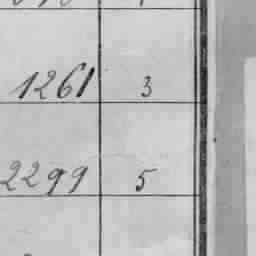 1261 3
2299 5